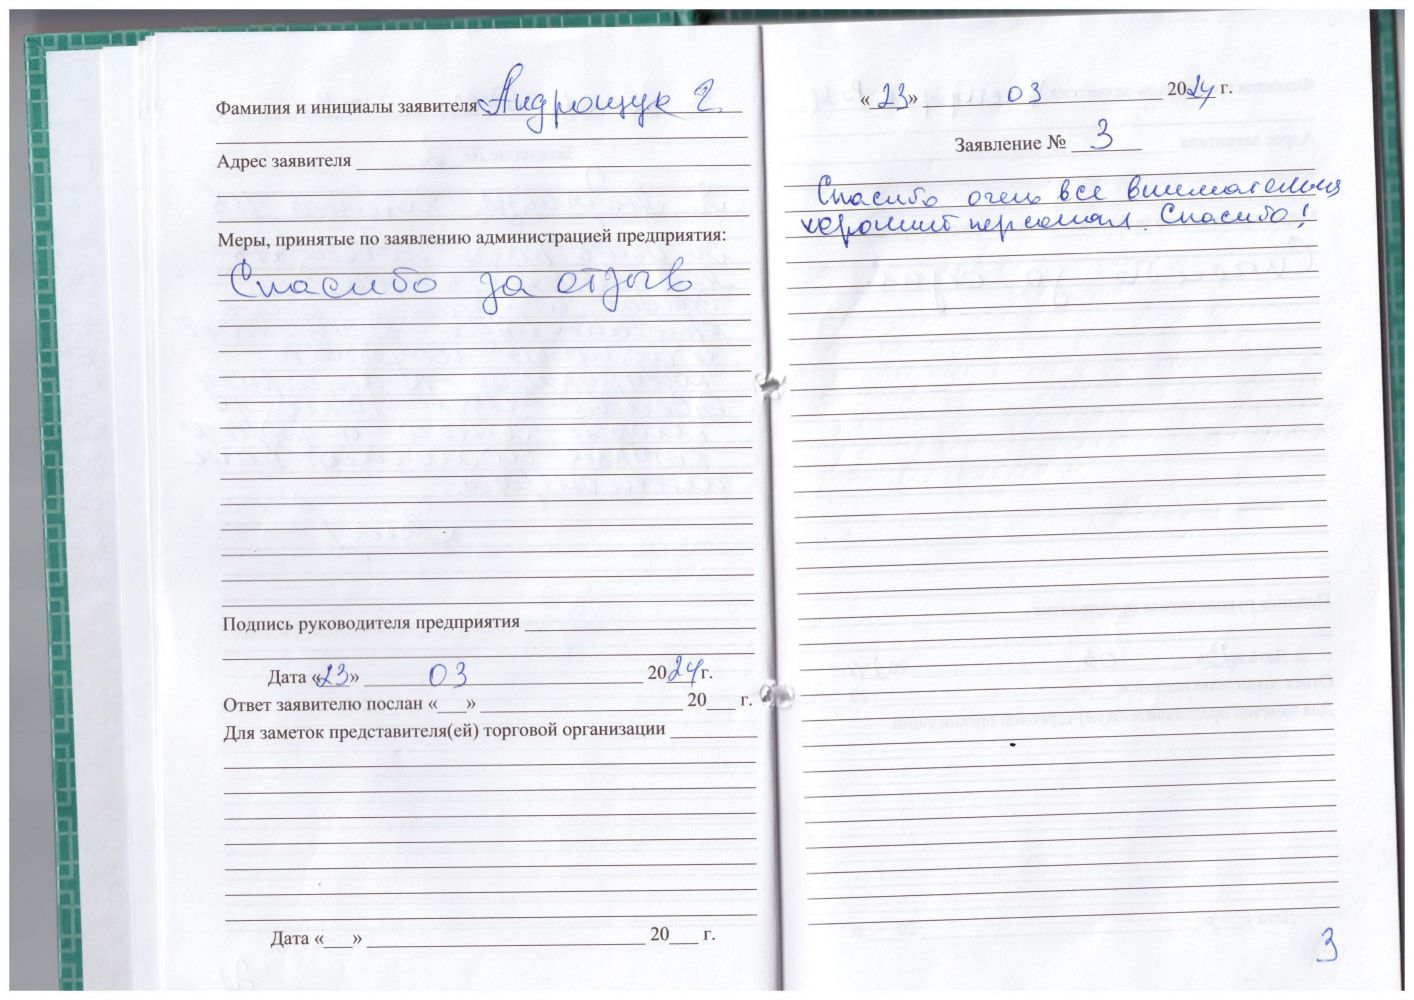 Фамилия и инициалы заявителя Андрощук Г
Адрес заявителя
Меры, принятые по заявлению администрацией предприятия:
Спасибо за отзыв
Подпись руководителя предприятия
Дата «23» 03 2024 г.
Ответ заявителю послан «___» 20___ г.
Для заметок представителя(ей) торговой организации
Дата «___» 20___ г.
«23» 03 2024 г.
Заявление № 3
Спасибо очень все внимательны
хороший персонал. Спасибо!
3